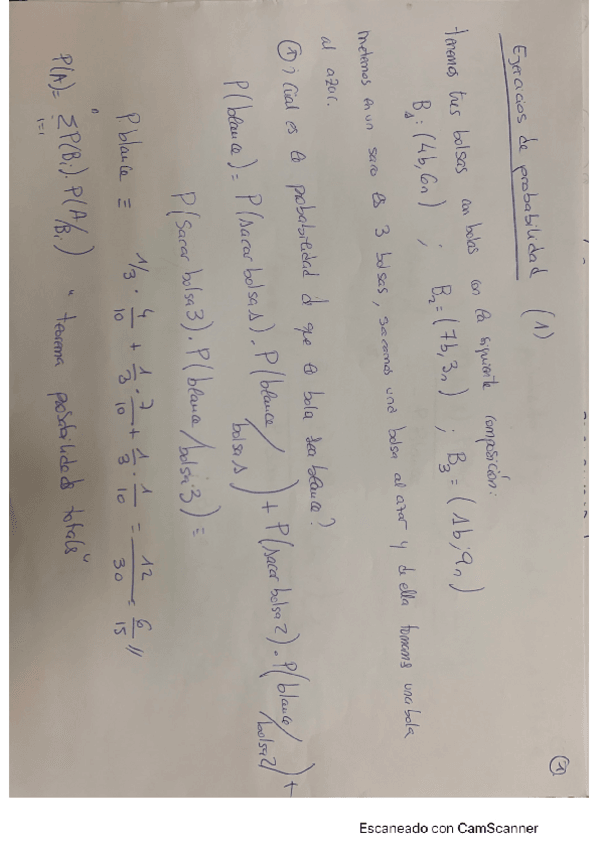 Ejercicios de probabilidad (1)
①
Tenemos tres bolsas con bolas con la siguiente composición:
B₁: (4b, 6n) ; B₂ = (7b, 3n) ; B₃ = (1b; 9n)
metemos en un saco las 3 bolsas, sacamos una bolsa al azar y de ella tomamos una bola
al azar.
① ¿Cuál es la probabilidad de que la bola sea blanca?
P(blanca) = P(sacar bolsa 1) · P(blanca/bolsa 1) + P(sacar bolsa 2) · P(blanca/bolsa 2) +
P(sacar bolsa 3) · P(blanca/bolsa 3) =
P blanca = 1/3 · 4/10 + 1/3 · 7/10 + 1/3 · 1/10 = 12/30 = 6/15 //
P(A) = Σⁿᵢ₌₁ P(Bᵢ) · P(A/Bᵢ) "teorema probabilidad total"
Escaneado con CamScanner